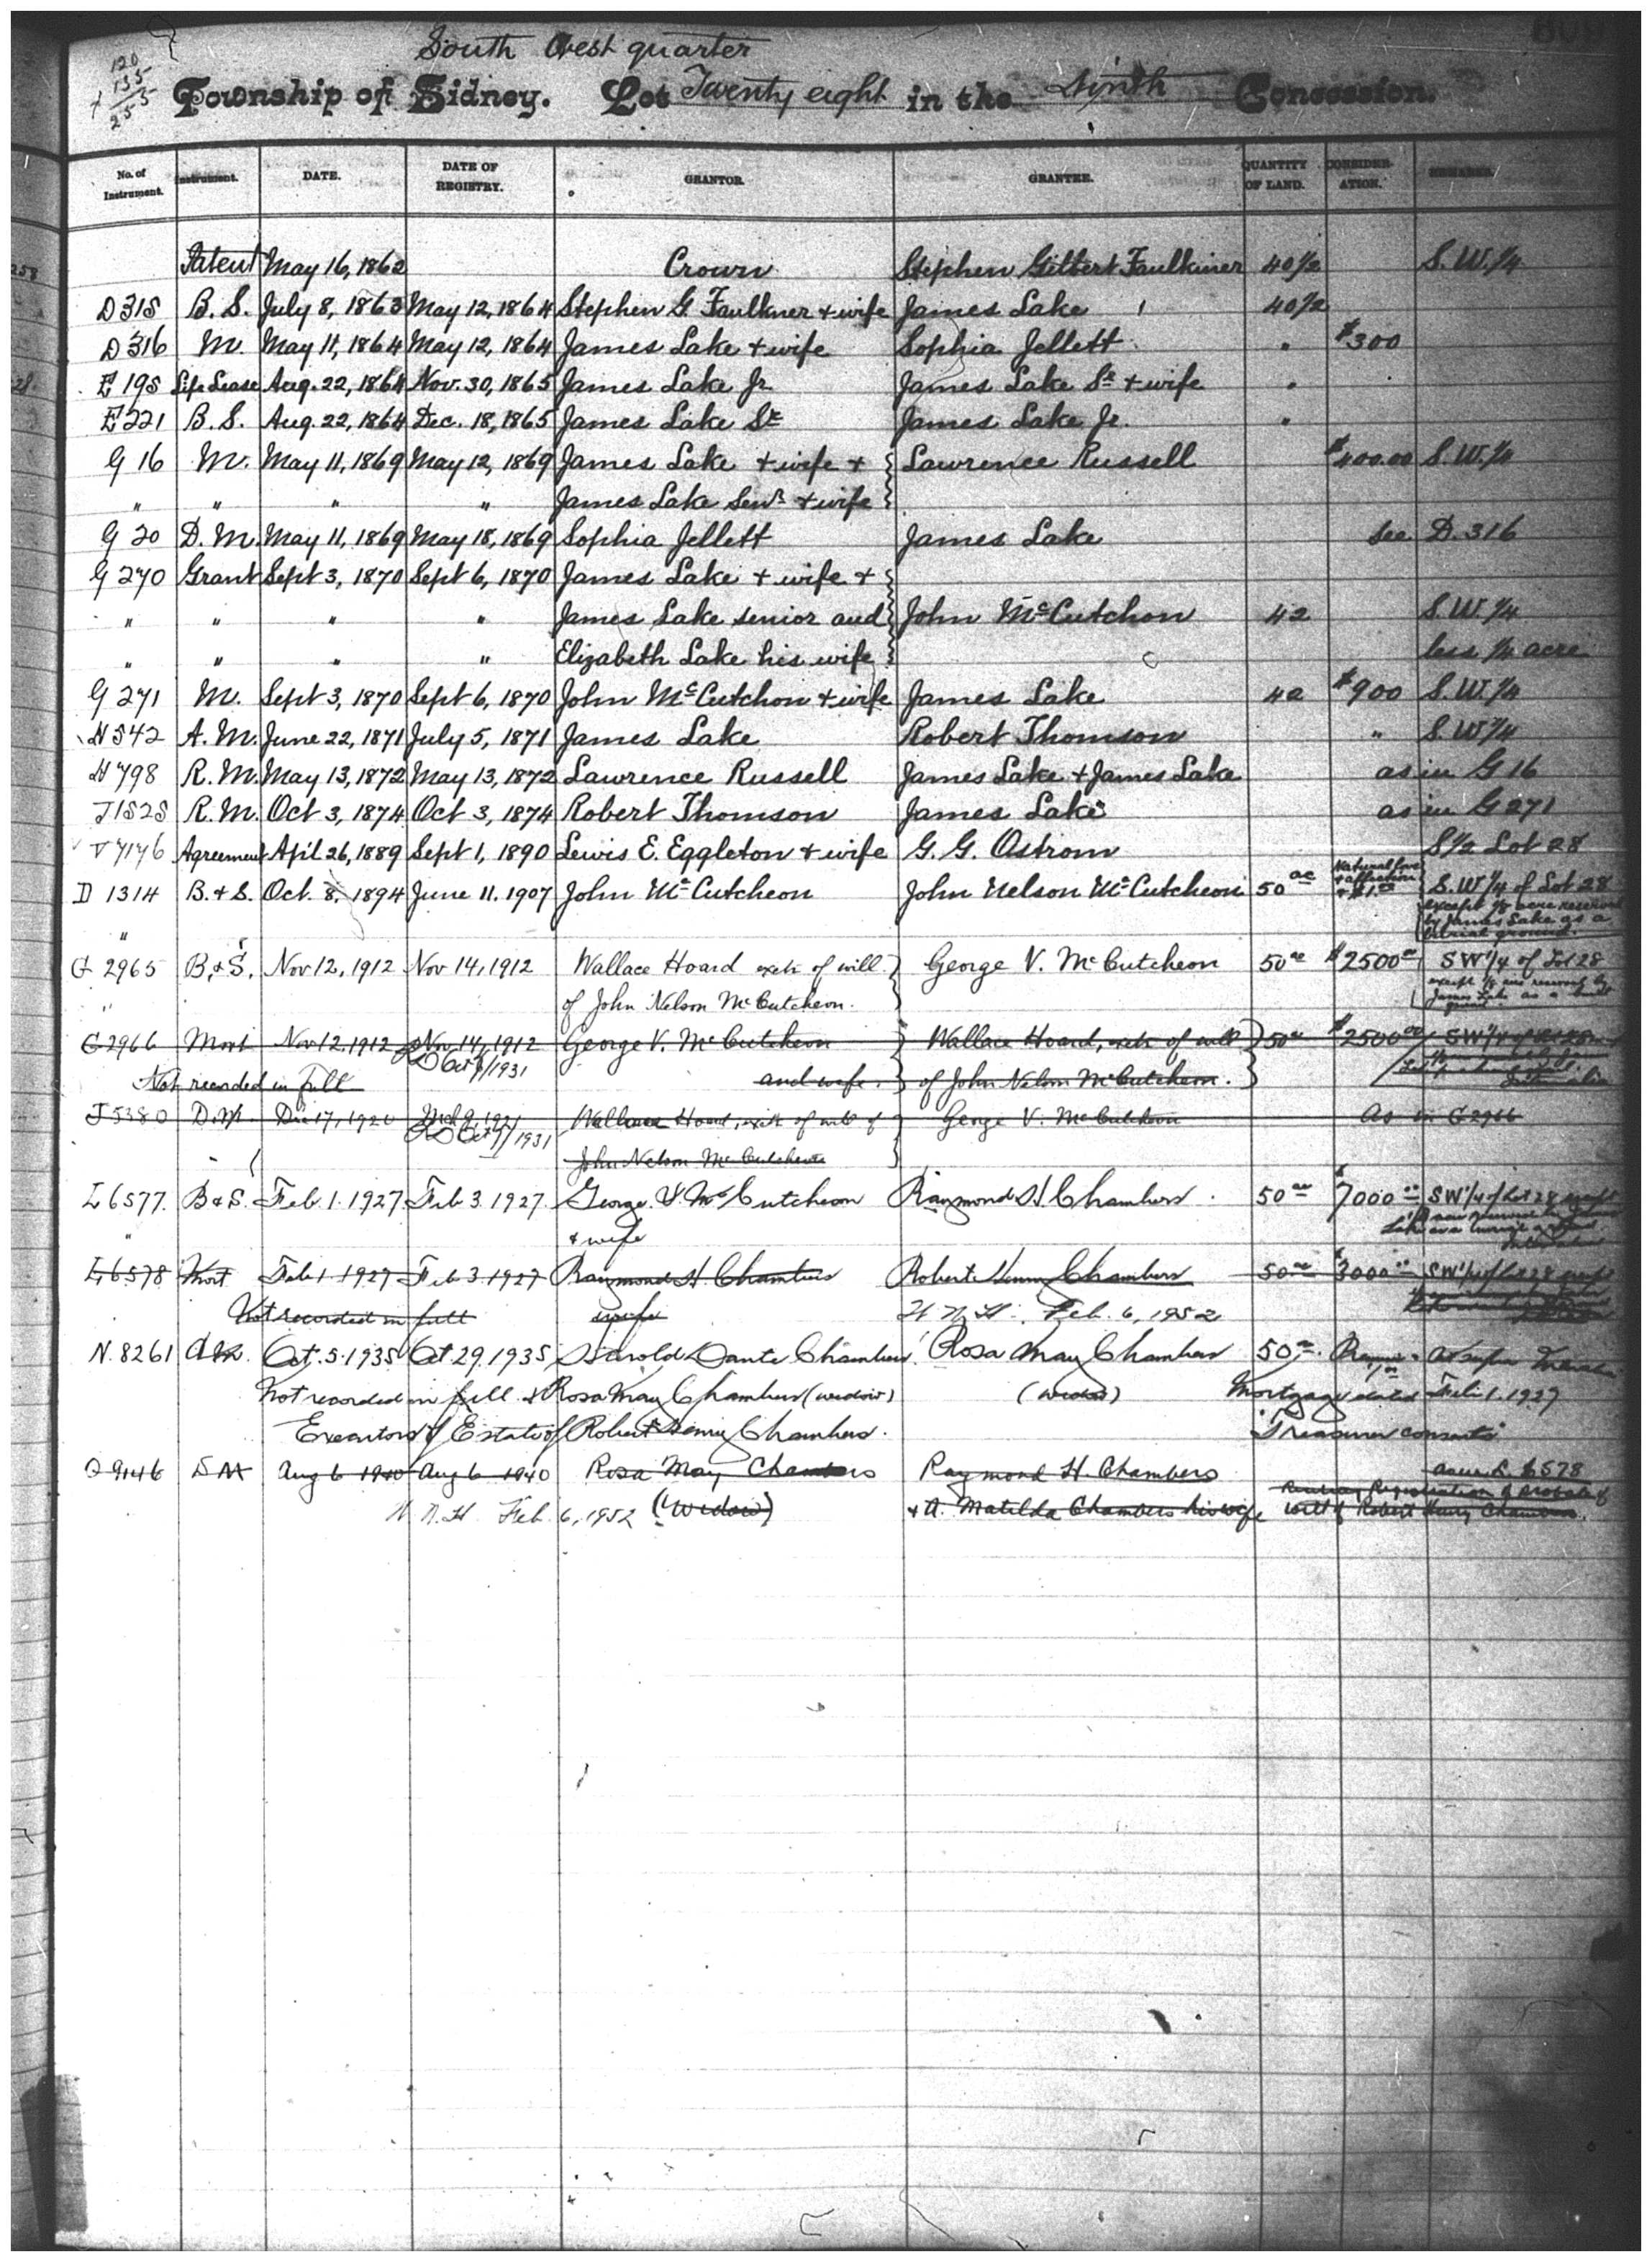 South West quarter
120
135
255
Township of Sidney. Lot Twenty eight in the Ninth Concession.
No. of Instrument. Instrument. DATE. DATE OF REGISTRY. GRANTOR. GRANTEE. QUANTITY OF LAND. CONSIDERATION. REMARKS.
Patent May 16, 1862 Crown Stephen Gilbert Faulkiner 40 1/2 S. W. 1/4
D 315 B. S. July 8, 1863 May 12, 1864 Stephen G. Faulkner + wife James Lake 40 1/2
D 316 M. May 11, 1864 May 12, 1864 James Lake + wife Sophia Jellett " $300
E 195 Life Lease Aug. 22, 1864 Nov. 30, 1865 James Lake Jr James Lake Sr + wife "
E 221 B. S. Aug. 22, 1864 Dec. 18, 1865 James Lake Sr James Lake Jr. "
G 16 M. May 11, 1869 May 12, 1869 James Lake + wife + Lawrence Russell $400.00 S. W. 1/4
" " " " James Lake Senr + wife
G 20 D. M. May 11, 1869 May 18, 1869 Sophia Jellett James Lake See D. 316
G 270 Grant Sept 3, 1870 Sept 6, 1870 James Lake + wife +
" " " " James Lake senior and John McCutchon 42 S. W. 1/4
" " " " Elizabeth Lake his wife less 1/4 acre
G 271 M. Sept 3, 1870 Sept 6, 1870 John McCutchon + wife James Lake 42 $900 S. W. 1/4
H 542 A. M. June 22, 1871 July 5, 1871 James Lake Robert Thomson " S. W 1/4
H 798 R. M. May 13, 1872 May 13, 1872 Lawrence Russell James Lake + James Lake as in G 16
J 1525 R. M. Oct 3, 1874 Oct 3, 1874 Robert Thomson James Lake as in G 271
V 7176 Agreement April 26, 1889 Sept 1, 1890 Lewis E. Eggleton + wife G. G. Ostrom S 1/2 Lot 28
D 1314 B. + S. Oct. 8, 1894 June 11. 1907 John McCutcheon John Nelson McCutcheon 50 ac Natural love + affection + $1.00 S. W 1/4 of Lot 28
except 1/8 acre reserved
by James Lake as a
burial ground.
G 2965 B. + S. Nov 12, 1912 Nov 14, 1912 Wallace Hoard exctr of will George V. McCutcheon 50 ac $2500 00 SW 1/4 of Lot 28
" of John Nelson McCutcheon. except 1/8 acre reserved by
James Lake as a burial
ground
G 2966 Mort Nov 12, 1912 Nov 14, 1912 George V. McCutcheon Wallace Hoard, exctr of will 50 ac $2500 00 SW 1/4 of Lot 28
Oct 7/1931
Not recorded in full and wife. of John Nelson McCutcheon.
J 5380 D. M. Dec 17, 1920 Mch 9, 1921 Wallace Hoard, exctr of will of George V. McCutcheon As in G 2966
Oct 7/1931
John Nelson McCutcheon
L 6577. B + S. Feb. 1. 1927 Feb 3. 1927 George V. McCutcheon Raymond H. Chambers. 50 ac $7000 00 SW 1/4 of Lot 28 except
" + wife
L 6578 Mort Feb 1 1927 Feb 3 1927 Raymond H. Chambers Robert Henry Chambers 50 ac $3000 00 SW 1/4 of Lot 28 except
Not recorded in full wife Feb. 6, 1952
N. 8261 Oct. 5. 1935 Oct. 29. 1935 Harold Dante Chambers Rosa May Chambers 50 ac
Not recorded in full. + Rosa May Chambers (widow) (widow) Mortgage dated Feb. 1. 1927
Executors of Estate of Robert Henry Chambers. Treasurer consents
9146 D M Aug 6 1940 Aug 6 1940 Rosa May Chambers Raymond H. Chambers
Feb. 6, 1952 (Widow) + A. Matilda Chambers his wife will of Robert Henry Chambers.